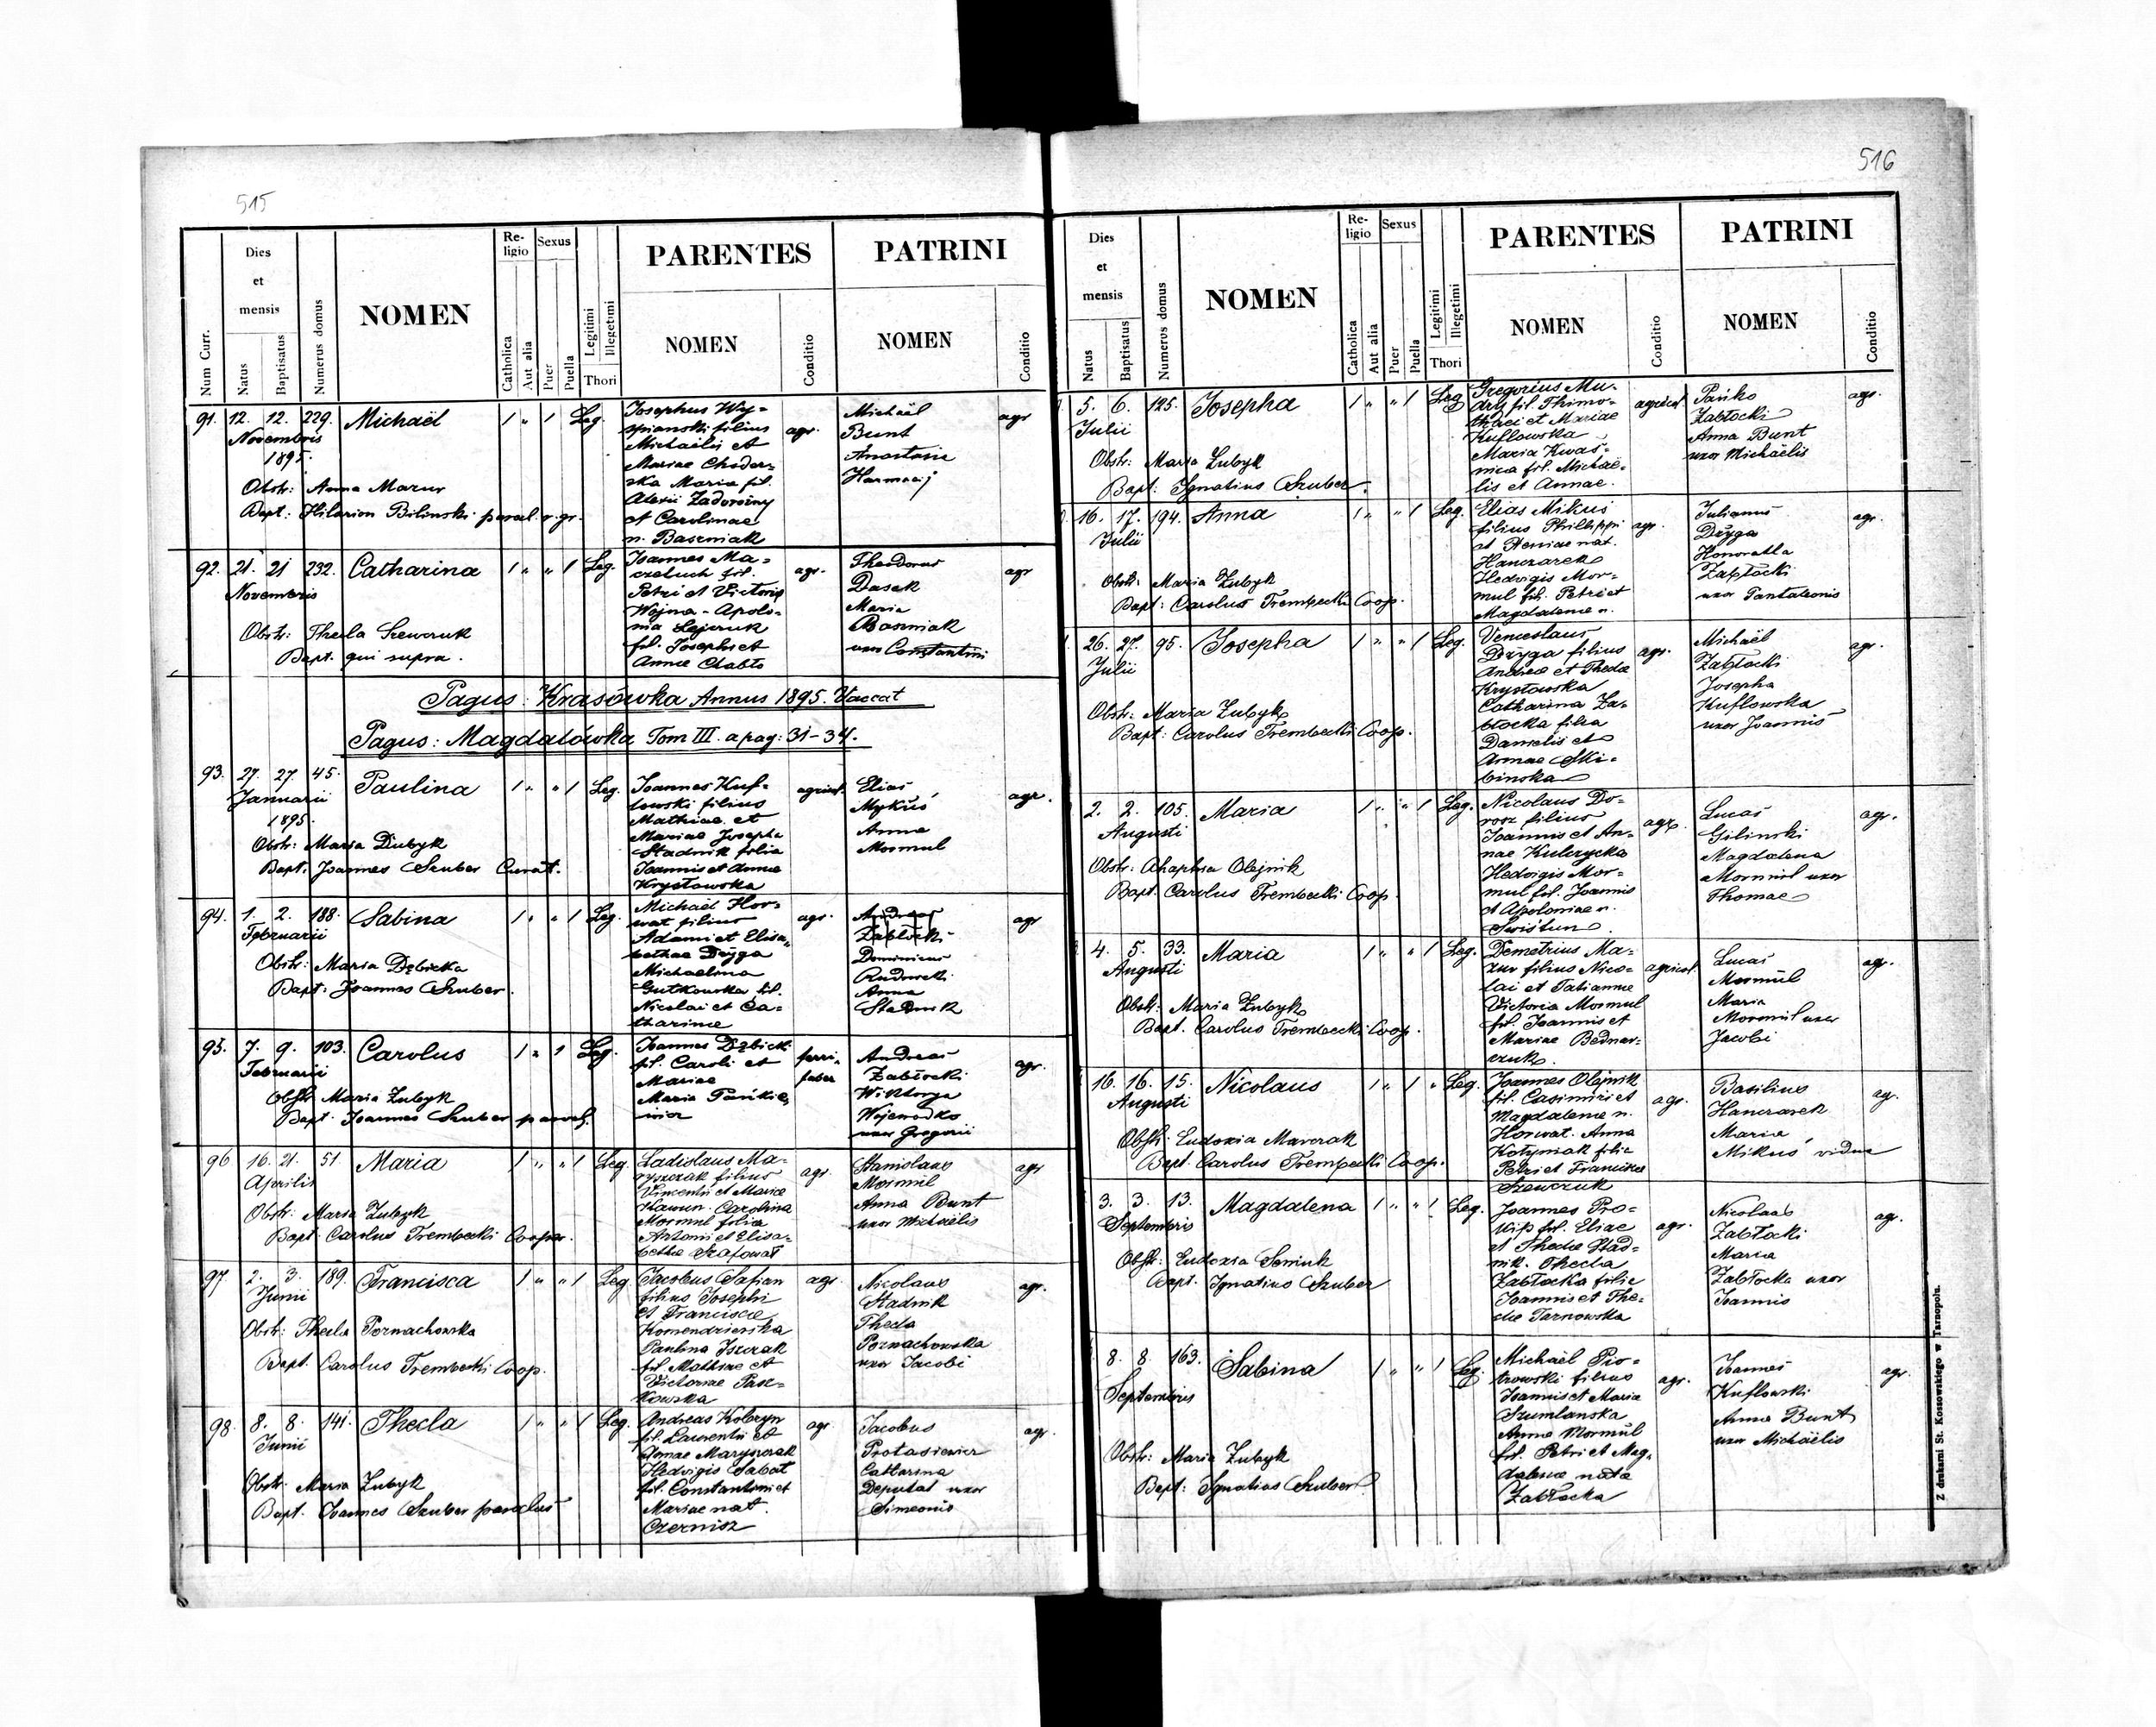 515
Num Curr.
Dies et mensis
Natus
Baptisatus
Numerus domus
NOMEN
Religio
Catholica
Aut alia
Sexus
Puer
Puella
Legitimi
Illegetimi
Thori
PARENTES
NOMEN
Conditio
PATRINI
NOMEN
Conditio
91. 12. 12. 229. Michaël 1 " 1 Leg.
Novembris
1895.
Obstr: Anna Mazur
Bapt: Hilarion Bilinski paroch. r. gr.
Josephus Wy-
spianski filius
Michaëlis et
Mariae Chider-
ska Maria fil.
Alexii Zadorożny
et Carolinae
n. Baszniak
agr.
Michaël
Bunt
Anastasia
Harmacij
agr
92. 21. 21 232. Catharina 1 " " 1 Leg.
Novembris
Obstr: Thecla Szewczuk
Bapt. qui supra.
Joannes Ma-
czeluch fil.
Petri et Victoria
Wojna - Apolo-
nia Lejczuk
fil. Josephi et
Annae Chabło
agr.
Theodorus
Dasek
Maria
Baszniak
uxor Constantini
agr
Pagus: Krasówka Annus 1895. Vaccat
Pagus: Magdalówka Tom III. a pag: 31-34.
93. 27. 27. 45. Paulina 1 " " 1 Leg.
Januarii
1895.
Obstr: Maria Dubyk
Bapt. Joannes Szuber Curat.
Joannes Kuf-
lowski filius
Mathiae et
Mariae Josepha
Stadnik filia
Joannis et Annae
Krysłowska
agricol.
Elias
Mykuś
Anna
Mormul
agr.
94. 1. 2. 188. Sabina 1 " " 1 Leg.
Februarii
Obstr: Maria Dębicka
Bapt: Joannes Szuber.
Michaël Hor-
wat filius
Adami et Elisa-
bethae Dżyga
Michaelina
Gutkowska fil.
Nicolai et Ca-
tharinae
agr.
Andreas
Zabłocki
Dominicus
Rudowski
Anna
Stadnik
agr
95. 7. 9. 103. Carolus 1 " 1 Leg.
Februarii
Obstr. Maria Zubyk
Bapt. Joannes Szuber paroch.
Joannes Dębicki
fil. Caroli et
Mariae
Maria Pańkie-
wicz
ferri-
faber
Andreas
Zabłocki
Wiktorya
Wojewodko
uxor Gregorii
agr.
96 16. 21. 51. Maria 1 " " 1 Leg.
Aprilis
Obstr: Maria Zubyk
Bapt. Carolus Trembecki Cooper.
Ladislaus Ma-
ryszczak filius
Vincentii et Mariae
Hawun. Carolina
Mormul filia
Antonii et Elisa-
bethae Szafowat
agr.
Stanislaus
Mormul
Anna Bunt
uxor Michaëlis
agr
97. 2. 3. 189. Francisca 1 " " 1 Leg.
Junii
Obstr: Thecla Poznachowska
Bapt. Carolus Trembecki Coop.
Jacobus Safian
filius Josephi
et Francisca
Komendzierska
Paulina Iszczak
fil. Mathiae et
Victoriae Pasz-
kowska
agr.
Nicolaus
Stadnik
Thecla
Poznachowska
uxor Jacobi
agr.
98. 8. 8. 141. Thecla 1 " " 1 Leg.
Junii
Obstr. Maria Zubyk
Bapt. Joannes Szuber parochus
Andreas Kobryn
fil. Laurentii et
Annae Maryszczak
Hedvigis Sabat
fil. Constantini et
Mariae nat.
Czernisz
agr.
Jacobus
Protasiewicz
Catharina
Deputat uxor
Simeonis
agr.
516
Dies et mensis
Natus
Baptisatus
Numerus domus
NOMEN
Religio
Catholica
Aut alia
Sexus
Puer
Puella
Legitimi
Illegetimi
Thori
PARENTES
NOMEN
Conditio
PATRINI
NOMEN
Conditio
5. 6. 125. Josepha 1 " " 1 Leg
Julii
Obstr: Maria Zubyk
Bapt: Ignatius Szuber.
Gregorius Mu-
dry fil. Thimo-
thaei et Mariae
Kuflowska
Maria Kwaś-
nica fil. Michaë-
lis et Annae.
agricol.
Pańko
Zabłocki
Anna Bunt
uxor Michaëlis
agr.
16. 17. 194. Anna 1 " " 1 Leg.
Julii
Obstr: Maria Zubyk
Bapt: Carolus Trembecki Coop.
Elias Mikus
filius Philippi
et Xeniae nat.
Hanczarek
Hedvigis Mor-
mul fil. Petri et
Magdalenae n.
agr.
Julianus
Dżyga
Honoratta
Zabłocki
uxor Pantaleonis
agr.
26. 27. 95. Josepha 1 " " 1 Leg.
Julii
Obstr: Maria Zubyk
Bapt: Carolus Trembecki Coop.
Venceslaus
Dżyga filius
Andreae et Theclae
Krysłowska
Catharina Za-
błocka filia
Danielis et
Annae Ski-
binska
agr.
Michaël
Zabłocki
Josepha
Kuflowska
uxor Joannis
agr.
2. 2. 105. Maria 1 " " 1 Leg.
Augusti
Obstr: Ahaphia Olejnik
Bapt. Carolus Trembecki Coop.
Nicolaus Do-
rosz filius
Joannis et An-
nae Kulczycka
Hedvigis Mor-
mul fil. Joannis
et Apoloniae n.
Swistun.
agr.
Lucas
Gilinski
Magdalena
Mormul uxor
Thomae
agr.
4. 5. 33. Maria 1 " " 1 Leg.
Augusti
Obstr: Maria Zubyk
Bapt. Carolus Trembecki Coop.
Demetrius Ma-
zur filius Nico-
lai et Tatiannae
Victoria Mormul
fil. Joannis et
Mariae Bednar-
czuk.
agricol.
Lucas
Mormul
Maria
Mormul uxor
Jacobi
agr.
16. 16. 15. Nicolaus 1 " 1 " Leg.
Augusti
Obstr: Eudoxia Marczak
Bapt. Carolus Trembecki Coop.
Joannes Olejnik
fil. Casimiri et
Magdalenae n.
Horwat. Anna
Kołyniak filia
Petri et Franciscae
Szewczuk
agr.
Basilius
Hanczarek
Maria
Mikuś vidua
agr.
3. 3. 13. Magdalena 1 " " 1 Leg.
Septembris
Obstr: Eudoxia Seniuk
Bapt. Ignatius Szuber
Joannes Pro-
kip fil. Eliae
et Theclae Stad-
nik. Thecla
Zabłocka filia
Joannis et The-
clae Tarnowska
agr.
Nicolaus
Zabłocki
Maria
Zabłocka uxor
Joannis
agr.
8. 8. 163. Sabina 1 " " 1 Leg.
Septembris
Obstr: Maria Zubyk
Bapt: Ignatius Szuber
Michaël Pio-
trowski filius
Joannis et Maria
Szumlanska
Anna Mormul
fil. Petri et Mag-
dalenae nata
Zabłocka
agr.
Joannes
Kuflowski
Anna Bunt
uxor Michaëlis
agr.
Z drukarni St. Kossowskiego w Tarnopolu.